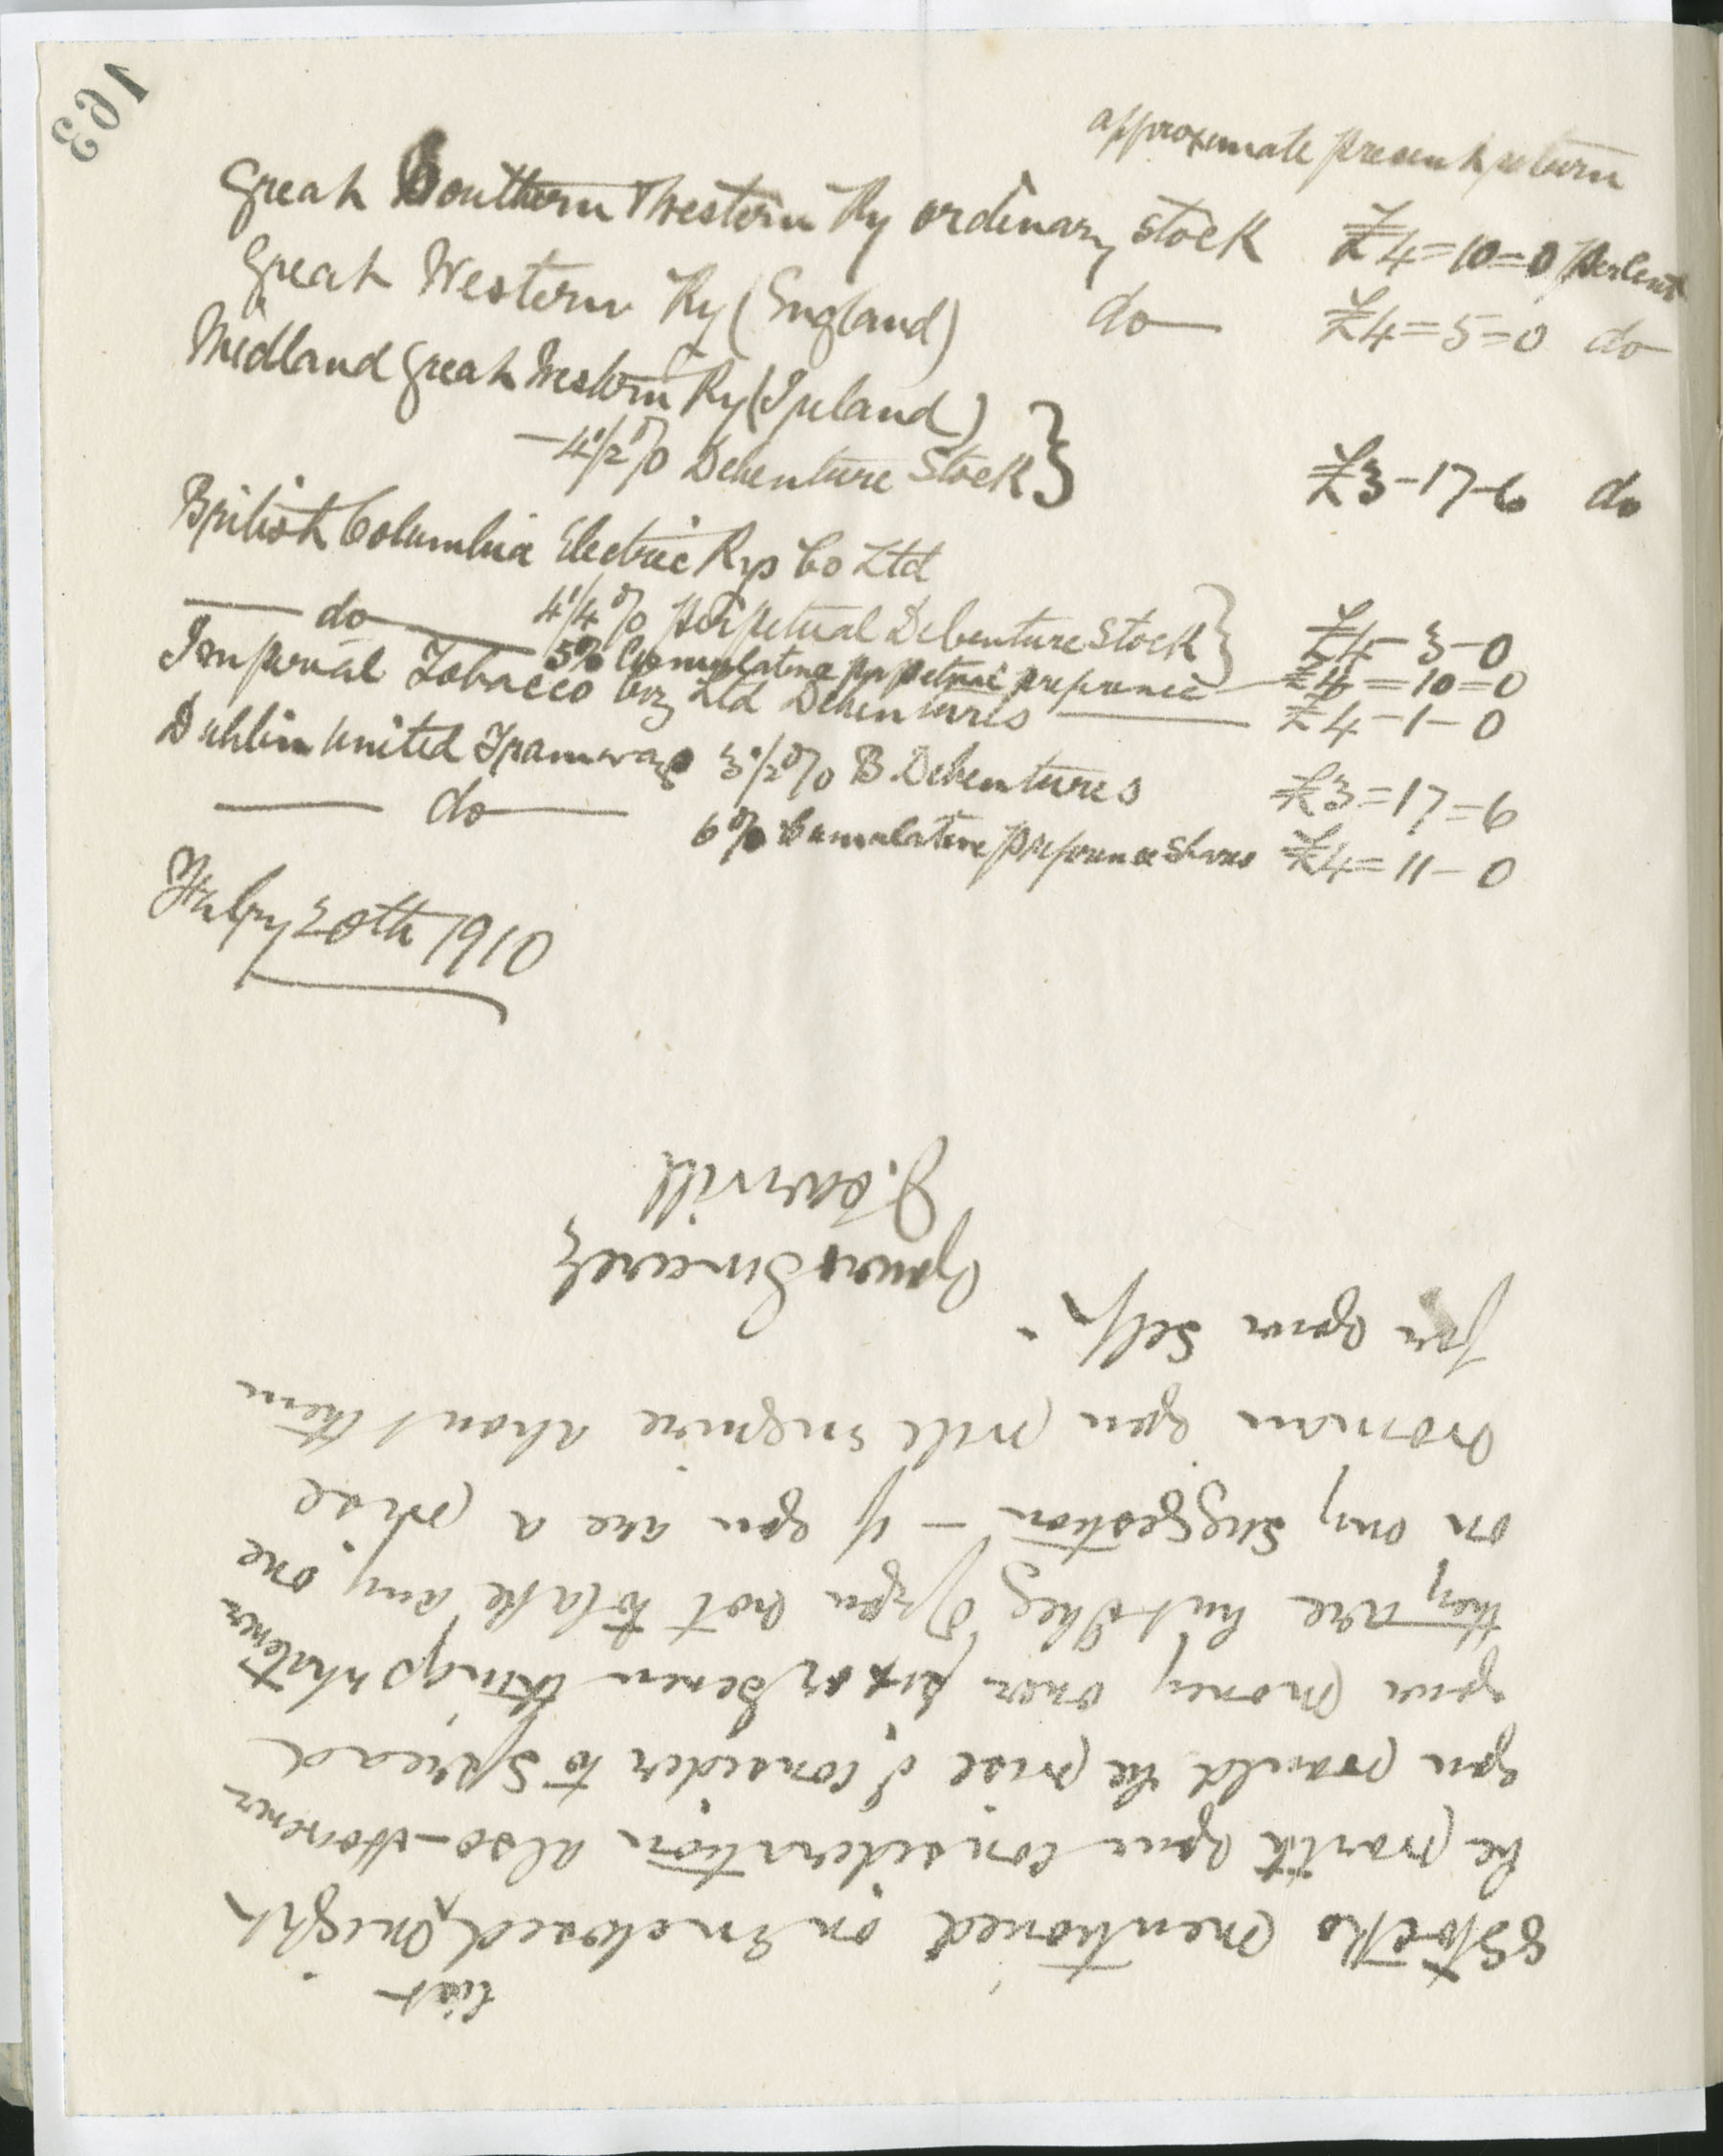 163
approximate present return
Great Southern & Western Ry ordinary stock £4=10=0 per Cent
Great Western Ry (England) do £4=5=0 do
Midland Great Western Ry (Ireland)
— 4 1/2 % Debenture Stock } £3-17-6 do
British Columbia Electric Rys Co Ltd
4 1/4 % perpetual Debenture Stock } £4-3-0
— do — 5% Cumulative perpetual preference — £4=10=0
Imperial Tobacco Coy Ltd Debentures — £4-1-0
Dublin United Tramways 3 1/2 % B. Debentures £3=17=6
— do — 6% Cumulative preference shares £4=11-0
Febry 20th 1910
list
8 Stocks mentioned on Enclosed ^ might
be worth your consideration also — However
you would be wise I consider to spread
your money over six or seven things whatever
they are but I beg of you not to take any one
on my suggestion — if you are a wise
woman you will enquire about them
for your self. -
Yours Sincerely